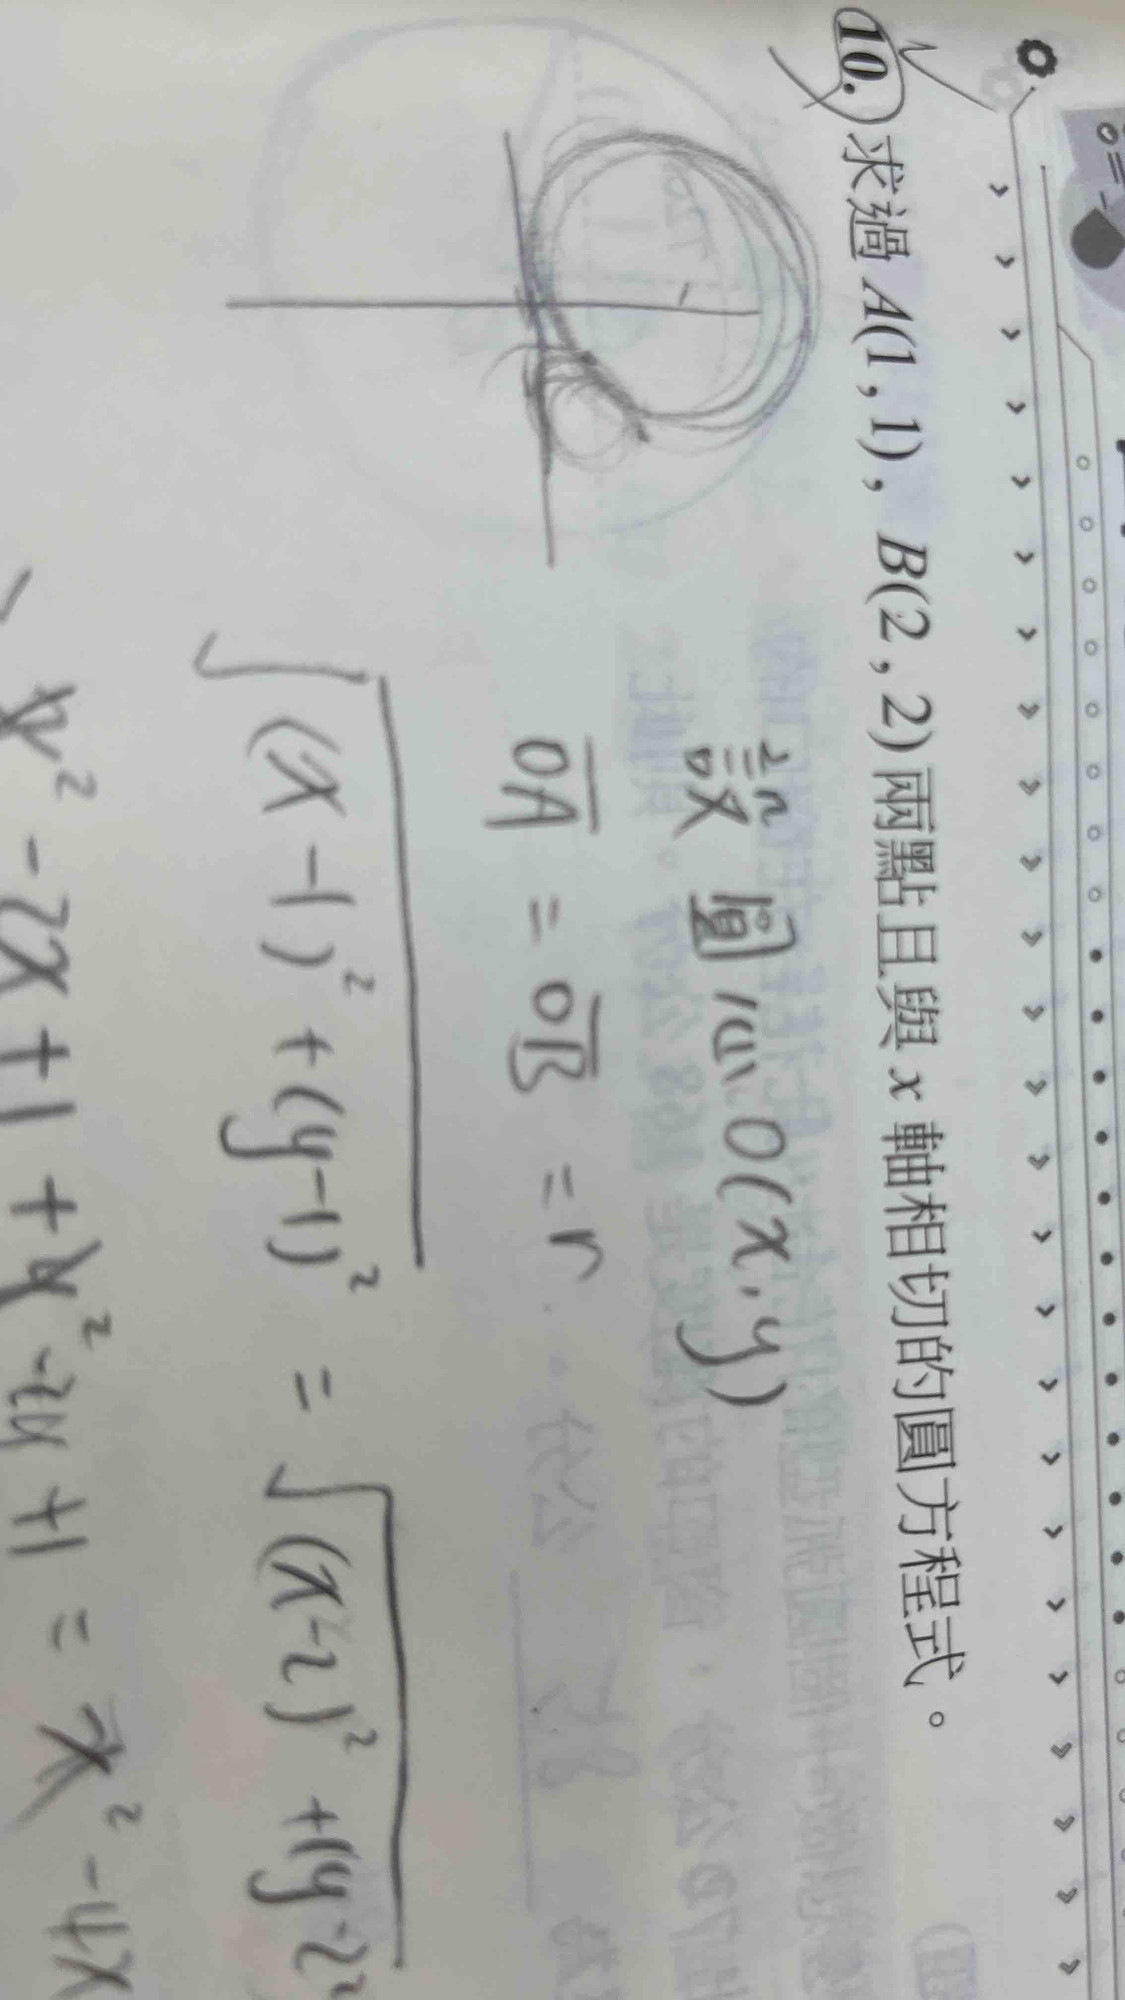 10. 求過 A(1,1),B(2,2)兩點且與 x 軸相切的圓方程式。
設圓心O(x,y)
OA = OB = r
√(x-1)²+(y-1)² = √(x-2)²+(y-2)²
x²-2x+1+y²-2y+1 = x²-4x